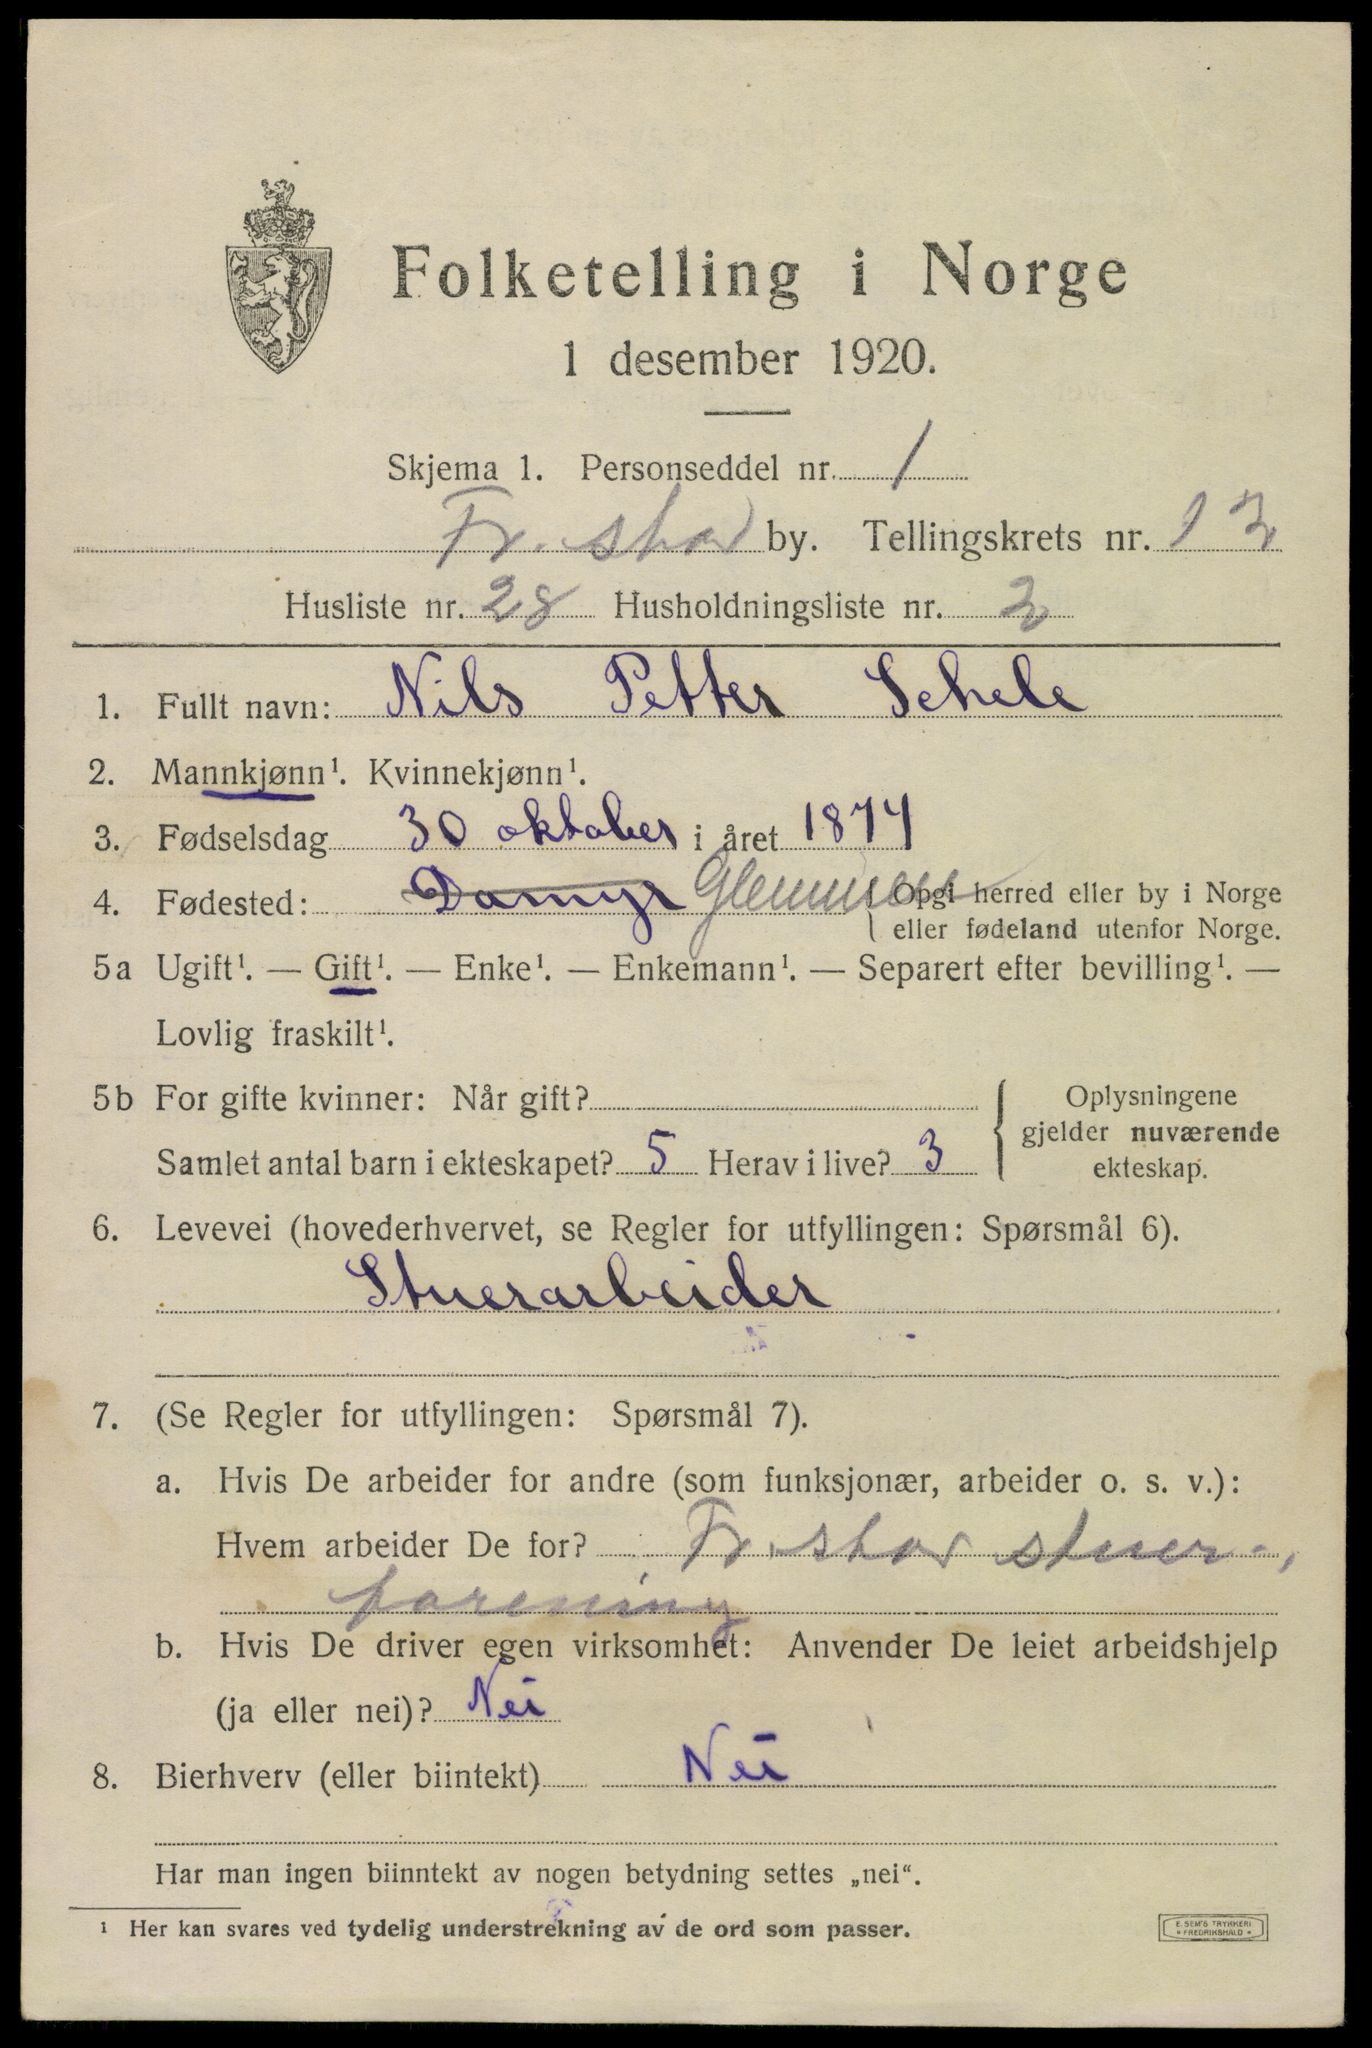 Folketelling i Norge
1 desember 1920.
Skjema 1. Personseddel nr. 1
Fr. stad by. Tellingskrets nr. 12
Husliste nr. 28 Husholdningsliste nr. 2
1. Fullt navn: Nils Petter Schele
2. Mannkjønn¹. Kvinnekjønn¹.
3. Fødselsdag 30 oktober i året 1874
4. Fødested: Damyr Glemmen { Opgi herred eller by i Norge
eller fødeland utenfor Norge.
5a Ugift¹. — Gift¹. — Enke¹. — Enkemann¹. — Separert efter bevilling¹. —
Lovlig fraskilt¹.
5b For gifte kvinner: Når gift?
Samlet antal barn i ekteskapet? 5 Herav i live? 3
{ Oplysningene
gjelder nuværende
ekteskap.
6. Levevei (hovederhvervet, se Regler for utfyllingen: Spørsmål 6).
Stuerarbeider
7. (Se Regler for utfyllingen: Spørsmål 7).
a. Hvis De arbeider for andre (som funksjonær, arbeider o. s. v.):
Hvem arbeider De for? Fr. stad stuer-
forening
b. Hvis De driver egen virksomhet: Anvender De leiet arbeidshjelp
(ja eller nei)? Nei
8. Bierhverv (eller biintekt) Nei
Har man ingen biinntekt av nogen betydning settes „nei“.
¹ Her kan svares ved tydelig understrekning av de ord som passer.
E. SEM'S TRYKKERI
* FREDRIKSHALD *